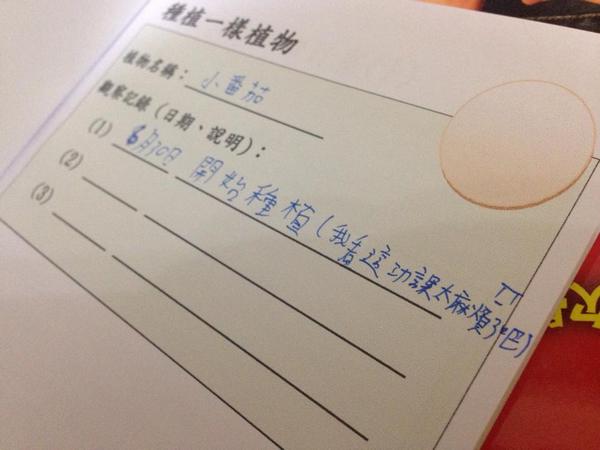 種植一樣植物
植物名稱：小番茄
觀察記錄（日期、說明）：
(1) 6月30日 開始種植（我看這功課太麻煩了吧）
(2)
(3)